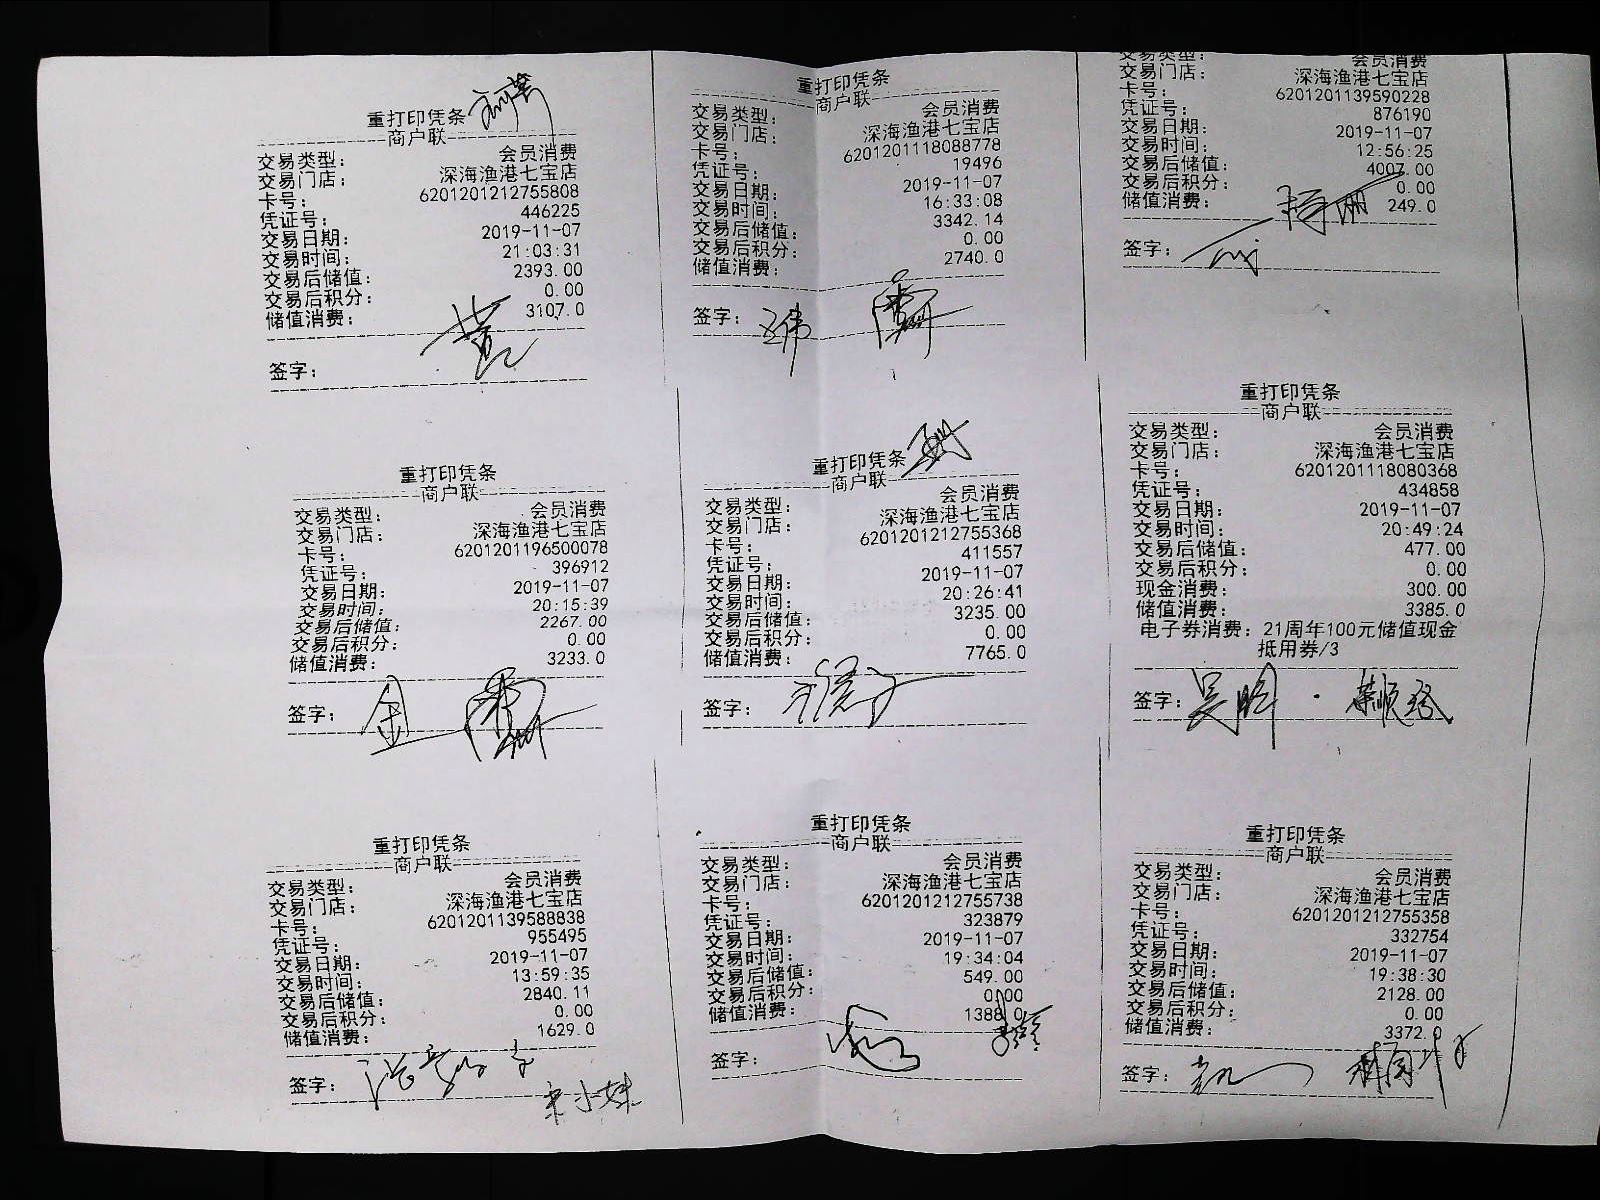 重打印凭条
商户联
交易类型： 会员消费
交易门店： 深海渔港七宝店
卡号： 6201201212755808
凭证号： 446225
交易日期： 2019-11-07
交易时间： 21:03:31
交易后储值： 2393.00
交易后积分： 0.00
储值消费： 3107.0
签字：
重打印凭条
商户联
交易类型： 会员消费
交易门店： 深海渔港七宝店
卡号： 6201201118088778
凭证号： 19496
交易日期： 2019-11-07
交易时间： 16:33:08
交易后储值： 3342.14
交易后积分： 0.00
储值消费： 2740.0
签字：
交易类型： 会员消费
交易门店： 深海渔港七宝店
卡号： 6201201139590228
凭证号： 876190
交易日期： 2019-11-07
交易时间： 12:56:25
交易后储值： 4007.00
交易后积分： 0.00
储值消费： 249.0
签字：
重打印凭条
商户联
交易类型： 会员消费
交易门店： 深海渔港七宝店
卡号： 6201201196500078
凭证号： 396912
交易日期： 2019-11-07
交易时间： 20:15:39
交易后储值： 2267.00
交易后积分： 0.00
储值消费： 3233.0
签字： 金
重打印凭条
商户联
交易类型： 会员消费
交易门店： 深海渔港七宝店
卡号： 6201201212755368
凭证号： 411557
交易日期： 2019-11-07
交易时间： 20:26:41
交易后储值： 3235.00
交易后积分： 0.00
储值消费： 7765.0
签字：
重打印凭条
商户联
交易类型： 会员消费
交易门店： 深海渔港七宝店
卡号： 6201201118080368
凭证号： 434858
交易日期： 2019-11-07
交易时间： 20:49:24
交易后储值： 477.00
交易后积分： 0.00
现金消费： 300.00
储值消费： 3385.0
电子券消费：21周年100元储值现金
抵用券/3
签字： 吴
重打印凭条
商户联
交易类型： 会员消费
交易门店： 深海渔港七宝店
卡号： 6201201139588838
凭证号： 955495
交易日期： 2019-11-07
交易时间： 13:59:35
交易后储值： 2840.11
交易后积分： 0.00
储值消费： 1629.0
签字：
宋小妹
重打印凭条
商户联
交易类型： 会员消费
交易门店： 深海渔港七宝店
卡号： 6201201212755738
凭证号： 323879
交易日期： 2019-11-07
交易时间： 19:34:04
交易后储值： 549.00
交易后积分： 0.00
储值消费： 1388.0
签字：
重打印凭条
商户联
交易类型： 会员消费
交易门店： 深海渔港七宝店
卡号： 6201201212755358
凭证号： 332754
交易日期： 2019-11-07
交易时间： 19:38:30
交易后储值： 2128.00
交易后积分： 0.00
储值消费： 3372.0
签字：